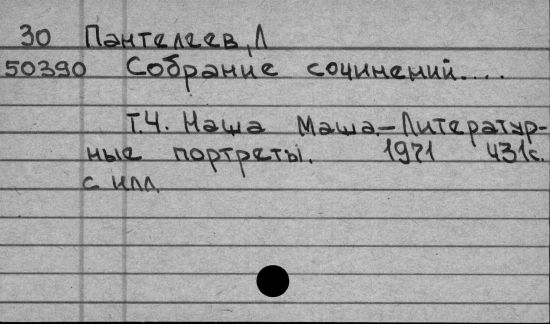 30 Пантелеев, Л
50390 Собрание сочинений....
Т.4. Наша Маша.—Литератур-
ные портреты. 1971 431с.
с илл.